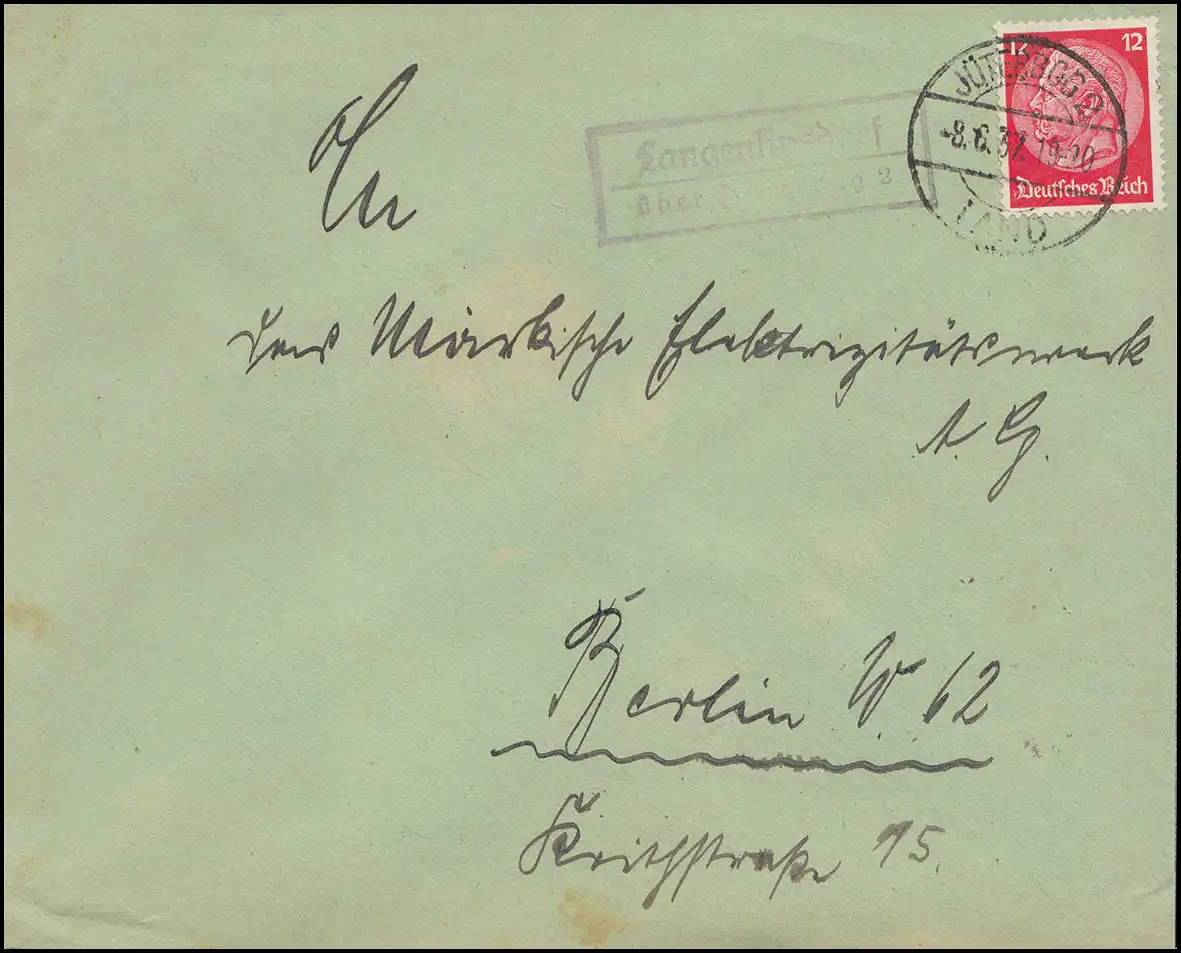 12 12
Deutsches Reich
JÜTERBOG 2
-8.6.37.19-20
LAND
über 2
An
das Märkische Elektrizitätswerk
A. G.
Berlin W 62
Keithstraße 15.